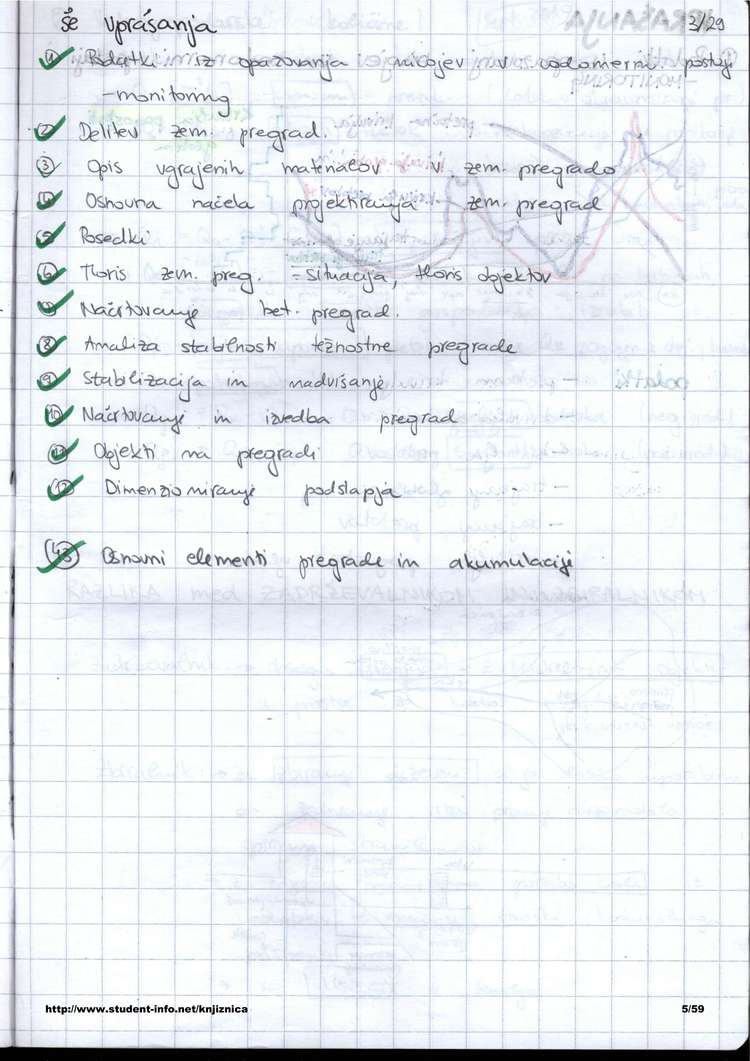 še vprašanja
3/29
1 Podatki iz opazovanja v vodomerni postaji
- monitoring
2 Delitev zem. pregrad.
3 Opis vgrajenih materialov v zem. pregrado
4 Osnovna načela projektiranja zem. pregrad
5 Posedki
6 Tloris zem. preg. = situacija, tloris objektov
7 Načrtovanje bet. pregrad.
8 Analiza stabilnosti težnostne pregrade
9 Stabilizacija in nadvišanje
10 Načrtovanje in izvedba pregrad
11 Objekti na pregradi
12 Dimenzioniranje podslapja
13 Osnovni elementi pregrade in akumulacije
http://www.student-info.net/knjiznica
5/59